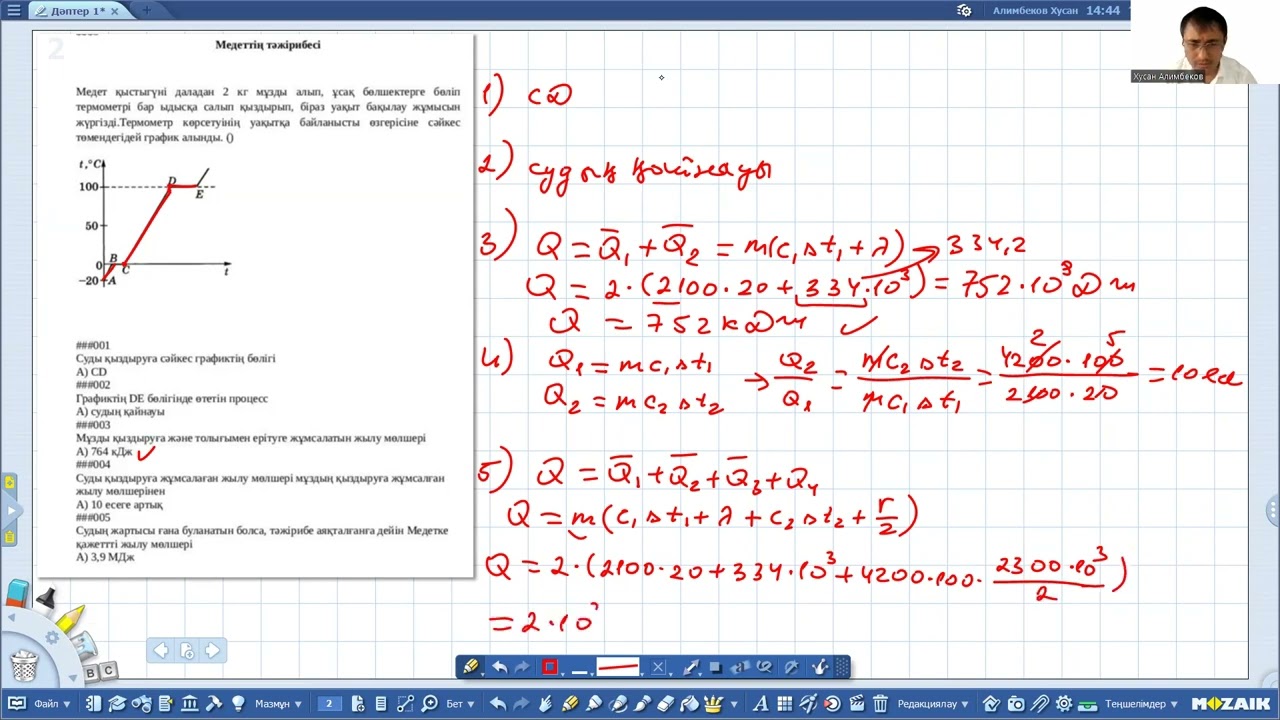 Дәптер 1*
Алимбеков Хусан 14:44
Хусан Алимбеков
2
Медеттің тәжірибесі
Медет қыстыгүні даладан 2 кг мұзды алып, ұсақ бөлшектерге бөліп
термометрі бар ыдысқа салып қыздырып, біраз уақыт бақылау жұмысын
жүргізді.Термометр көрсетуінің уақытқа байланысты өзгерісіне сәйкес
төмендегідей график алынды. ()
t,°C
100
D
E
50
0
B
C
-20
A
t
###001
Суды қыздыруға сәйкес графиктің бөлігі
A) CD
###002
Графиктің DE бөлігінде өтетін процесс
A) судың қайнауы
###003
Мұзды қыздыруға және толығымен ерітуге жұмсалатын жылу мөлшері
A) 764 кДж
###004
Суды қыздыруға жұмсалаған жылу мөлшері мұздың қыздыруға жұмсалған
жылу мөлшерінен
A) 10 есеге артық
###005
Судың жартысы ғана буланатын болса, тәжірибе аяқталғанға дейін Медетке
қажеттті жылу мөлшері
A) 3,9 МДж
1) CD
2) судың қайнауы
3) Q = Q̅₁ + Q̅₂ = m(c₁Δt₁ + λ) → 334,2
Q = 2·(2100·20 + 334·10³) = 752·10³ Дж
Q = 752 кДж ✓
4) Q₁ = mc₁Δt₁
Q₂ = mc₂Δt₂
→ Q₂/Q₁ = mc₂Δt₂/mc₁Δt₁ = 4200·100/2100·20 = 10 есе
2 5
5) Q = Q̅₁ + Q̅₂ + Q̅₃ + Q₄
Q = m(c₁Δt₁ + λ + c₂Δt₂ + r/2)
Q = 2·(2100·20 + 334·10³ + 4200·100· 2300·10³/2)
= 2·10³
Файл
Мазмұн
2
Бет
Редакциялау
Теңшелімдер
MOZAIK
A B C